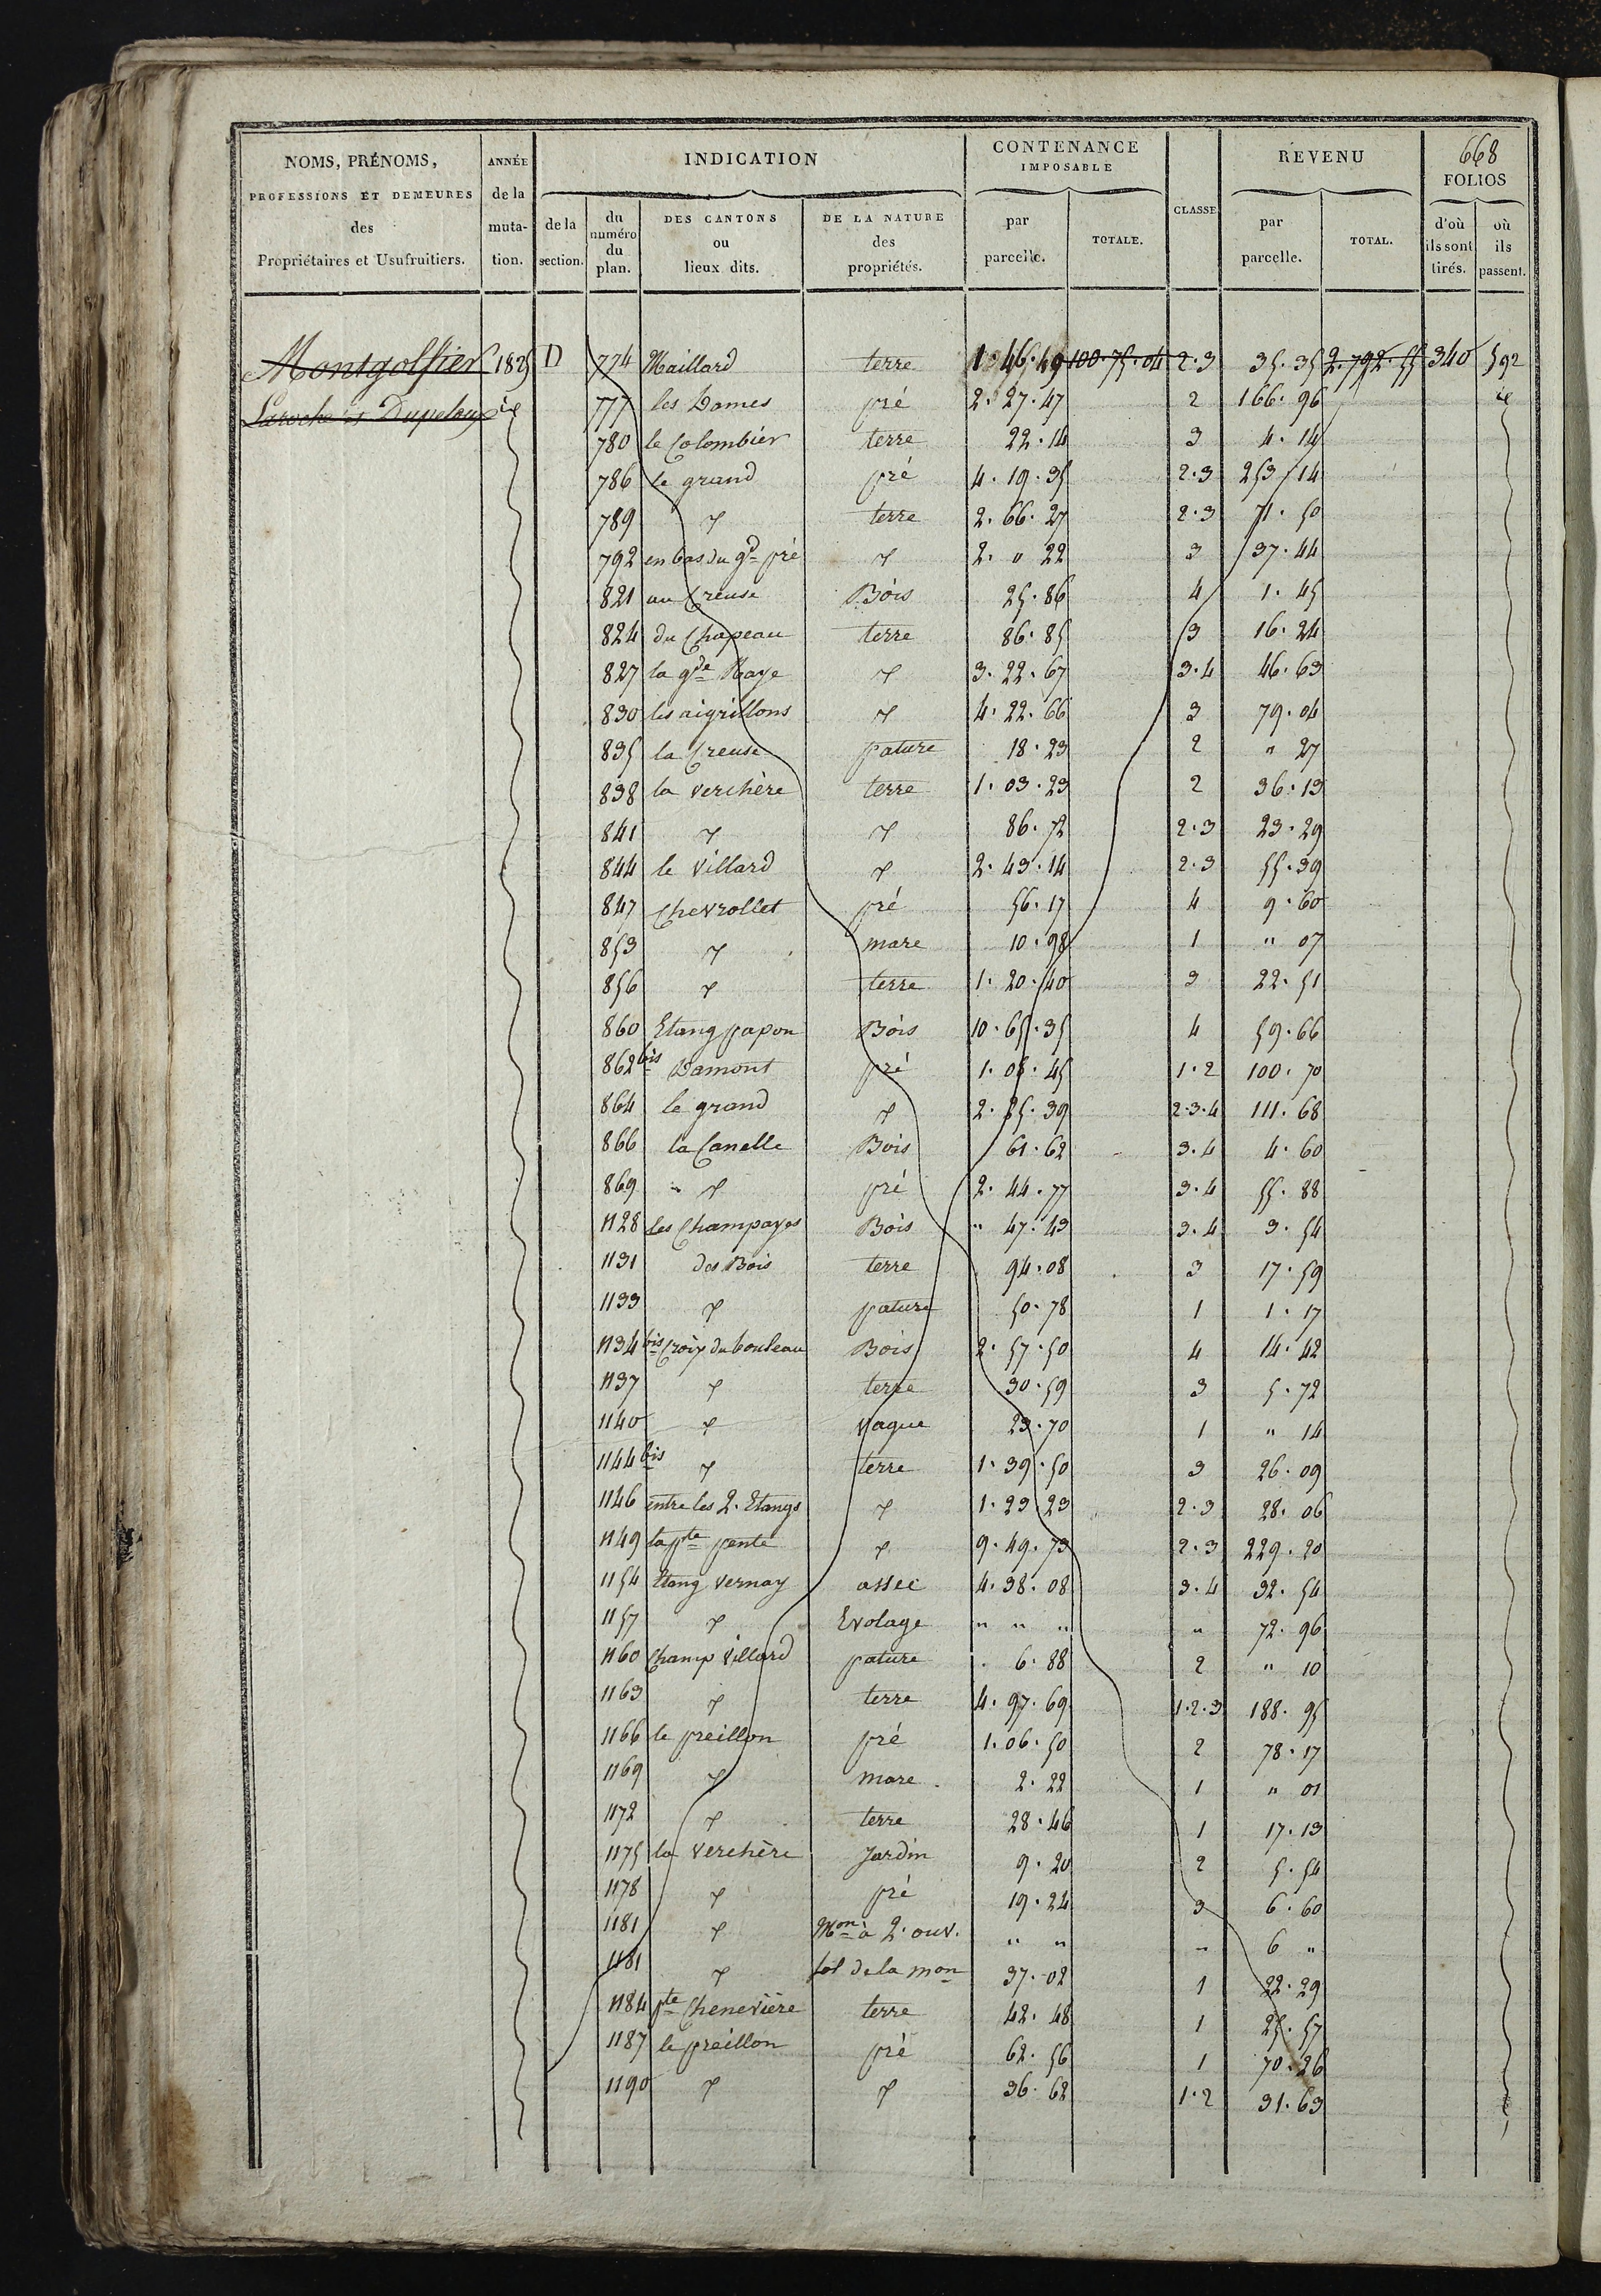 668
NOMS, PRÉNOMS, PROFESSIONS ET DEMEURES des Propriétaires et Usufruitiers.
ANNÉE de la muta- tion.
INDICATION
de la section.
du numéro du plan.
DES CANTONS ou lieux dits.
DE LA NATURE des propriétés.
CONTENANCE IMPOSABLE
par parcelle.
TOTALE.
CLASSE
REVENU
par parcelle.
TOTAL.
FOLIOS
d'où ils sont tirés.
où ils passent.
Montgolfier 1825 D 774 Maillard terre 1.46.49 100.75.04 2.3 35.35 2.792.55 340 592
Laroche et Dupeloux id 777 les Dames pré 2.27.47 2 166.96 id
780 le Colombier terre 22.14 3 4.14
786 le grand pré 4.19.35 2.3 253.14
789 " terre 2.66.27 2.3 71.50
792 en bas du gd pré " 2. 0 22 3 37.44
821 au Creuse Bois 25.86 4 1.45
824 du Chapeau terre 86.85 3 16.24
827 la gde Raye " 3.22.67 3.4 46.63
830 les aigrillons " 4.22.66 3 79.04
835 la Creuse pature 18.23 2 " 27
838 la verchère terre 1.03.23 2 36.13
841 " " 86.72 2.3 23.29
844 le Villard " 2.43.14 2.3 55.39
847 Chevrollet pré 56.17 4 9.60
853 " mare 10.98 1 " 07
856 " terre 1.20.40 3 22.51
860 Etang papon Bois 10.65.35 4 59.66
862 bis Damont pré 1.08.45 1.2 100.70
864 le grand " 2.85.39 2.3.4 111.68
866 la Canelle Bois 61.62 3.4 4.60
869 " pré 2.44.77 3.4 55.88
1128 les Champayes Bois " 47.43 3.4 3.54
1131 des Bois terre 94.08 3 17.59
1133 " pature 50.78 1 1.17
1134 bis Croix du bouleau Bois 2.57.50 4 14.42
1137 " terre 30.59 3 5.72
1140 " vague 23.70 1 " 14
1144 bis " terre 1.39.50 3 26.09
1146 entre les 2. Etangs " 1.23.23 2.3 28.06
1149 la pte pente " 9.49.73 2.3 229.20
1154 Etang Vernay assec 4.38.08 3.4 32.54
1157 " Evolage " " " " 72.96
1160 Champ Villard pature 6.88 2 " 10
1163 " terre 4.97.69 1.2.3 188.95
1166 le preillon pré 1.06.50 2 78.17
1169 " mare 2.22 1 " 01
1172 " terre 28.46 1 17.13
1175 la Verchère Jardin 9.20 2 5.54
1178 " pré 19.24 3 6.60
1181 " Mon à 2. ouv. " " " 6 "
1181 " sol de la mon 37.02 1 22.29
1184 pte Chenevière terre 42.48 1 25.57
1187 le preillon pré 62.56 1 70.26
1190 " " 36.62 1.2 31.63